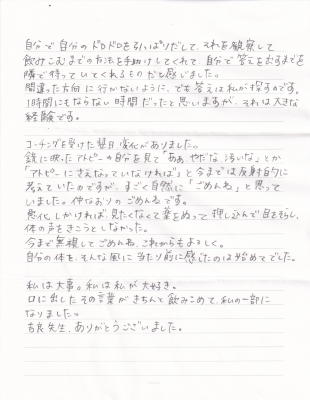 自分で自分のドロドロを引っぱりだして、それを観察して
飲みこむまでの方法を手助けしてくれて、自分で答えをだすまでを
隣で待っていてくれるものだと感じました。
間違った方向に行かないように、でも答えは私が探すのです。
1時間にもならない時間だったと思いますが、それは大きな
経験です。
コーチングを受けた翌日、変化がありました。
鏡に映ったアトピーの自分を見て「あぁ やだな、汚いな」とか
「アトピーにさえなっていなければ」と今までは反射的に
考えていたのですが、すごく自然に「ごめんね」と思って
いました。仲なおりのごめんねです。
悪化しかければ、見たくなくて薬をぬって押し込んで目をそらし、
体の声をきこうとしなかった。
今まで無視してごめんね、これからもよろしく。
自分の体を、そんな風に当たり前に感じたのは始めてでした。
私は大事。私は私が大好き。
口に出したその言葉がきちんと飲みこめて、私の一部に
なりました。
吉良先生、ありがとうございました。